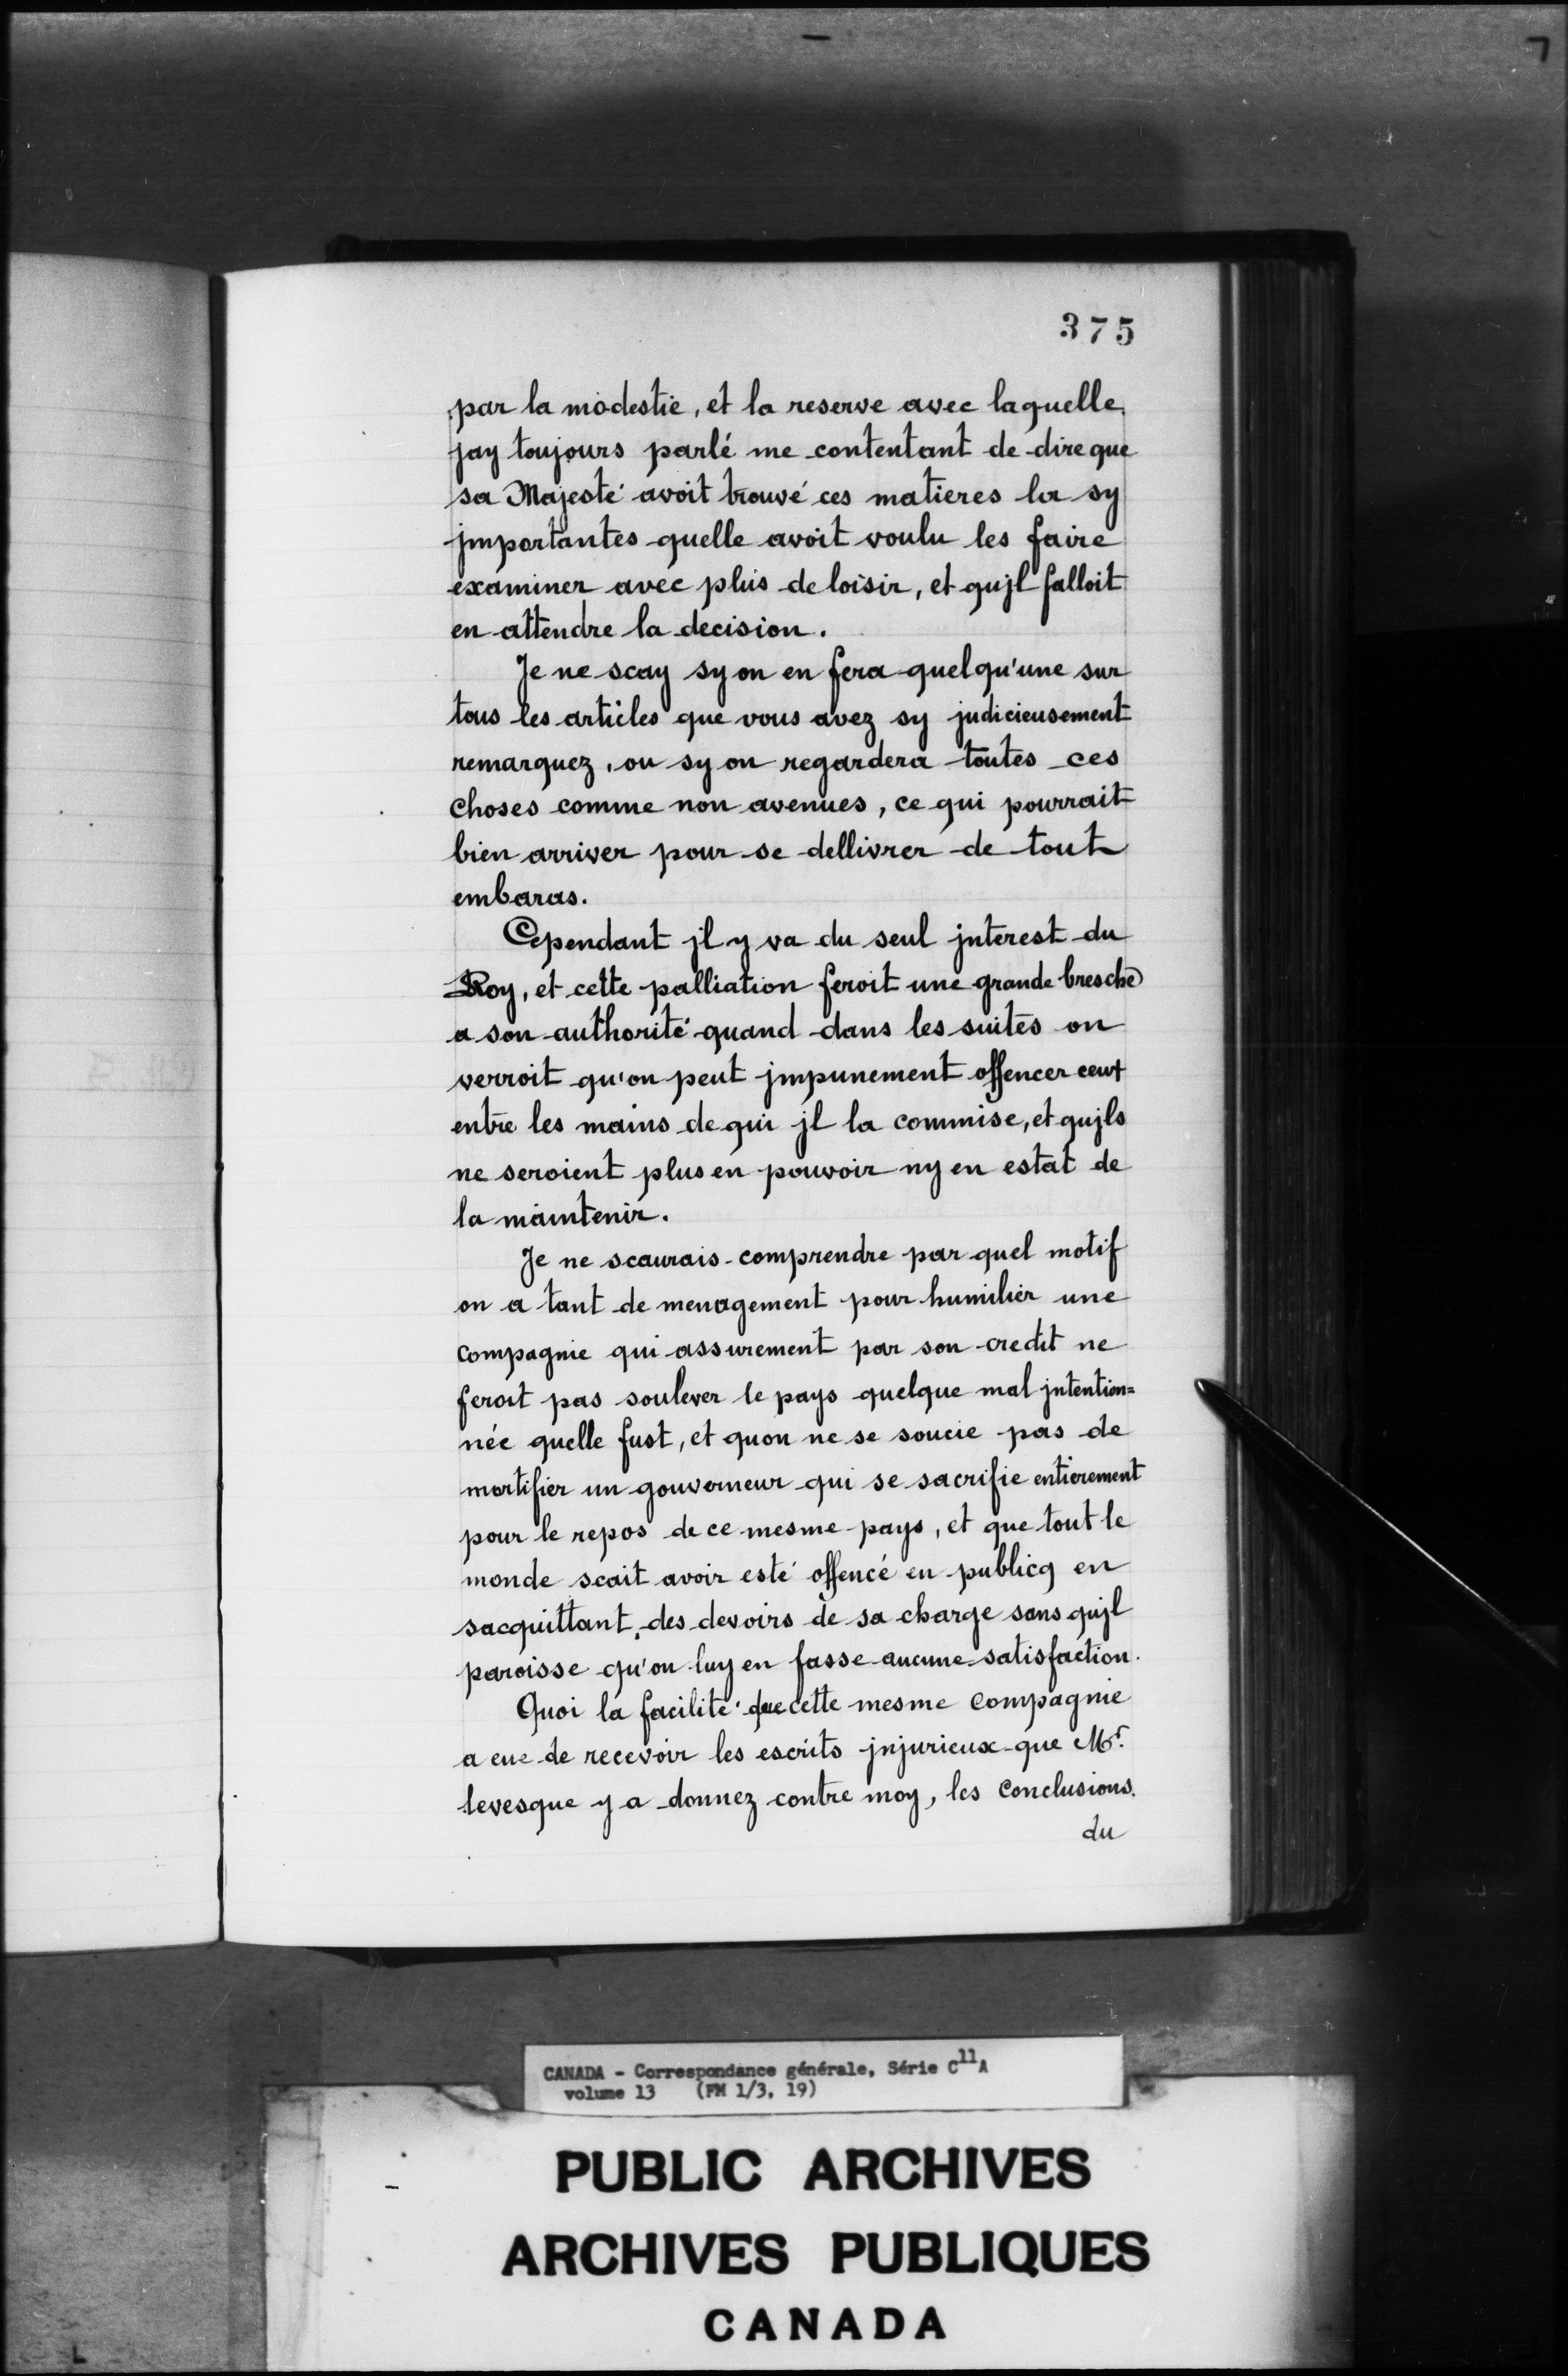 375
par la modestie, et la reserve avec laquelle
jay toujours parlé me contentant de dire que
sa Majesté avoit trouvé ces matieres la sy
jmportantes quelle avoit voulu les faire
examiner avec plus de loisir, et qujl falloit
en attendre la decision.
Je ne scay sy on en fera quelqu'une sur
tous les articles que vous avez sy judicieusement
remarquez, ou sy on regardera toutes ces
choses comme non avenues, ce qui pourrait
bien arriver pour se dellivrer de tout
embaras.
Cependant jl y va du seul jnterest du
Roy, et cette palliation feroit une grande bresche
a son authorité quand dans les suites on
verroit qu'on peut jmpunement offencer ceux
entre les mains de qui jl la commise, et qujls
ne seroient plus en pouvoir ny en estat de
la maintenir.
Je ne scaurais comprendre par quel motif
on a tant de menagement pour humilier une
compagnie qui assurement par son credit ne
feroit pas soulever le pays quelque mal jntention=
née quelle fust, et quon ne se soucie pas de
mortifier un gouverneur qui se sacrifie entierement
pour le repos de ce mesme pays, et que tout le
monde scait avoir esté offencé en publicq en
sacquittant des devoirs de sa charge sans qujl
paroisse qu'on luy en fasse aucune satisfaction.
Quoi la facilité que cette mesme compagnie
a eue de recevoir les escrits jnjurieux que Mr.
levesque y a donnez contre moy, les conclusions
du
CANADA - Correspondance générale, Série C11A
volume 13 (FM 1/3, 19)
PUBLIC ARCHIVES
ARCHIVES PUBLIQUES
CANADA